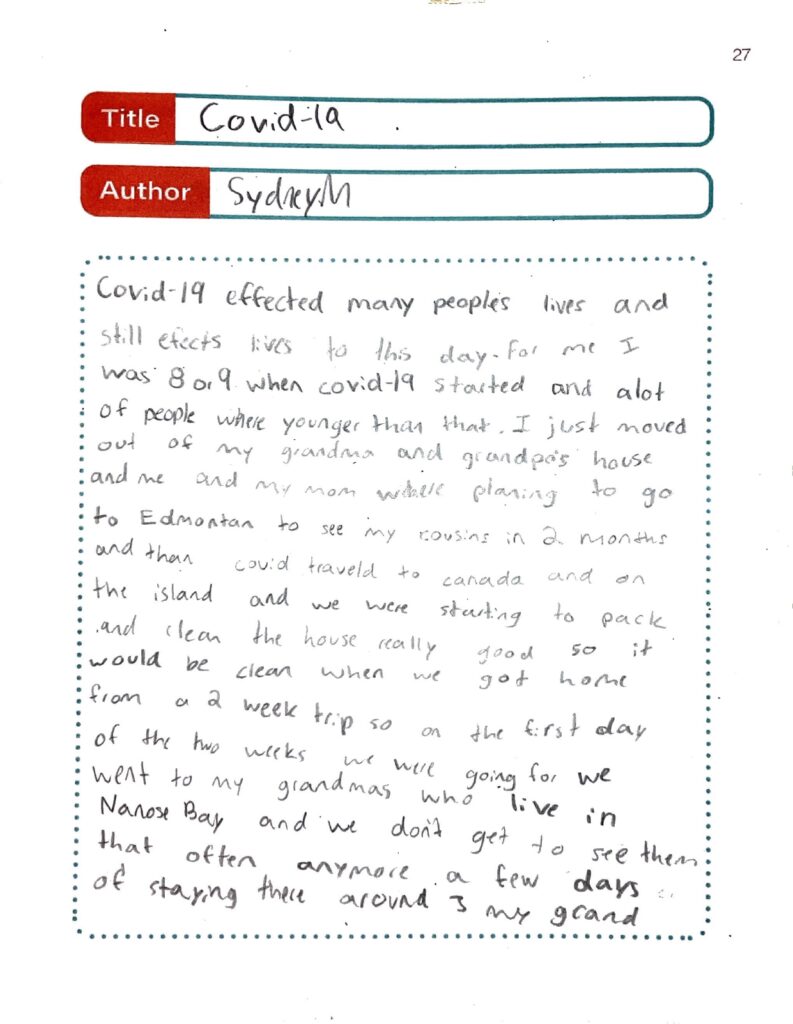 27
Title Covid-19
Author Sydney.M
Covid-19 effected many people's lives and
still efects lives to this day. For me I
was 8 or 9 when covid-19 started and alot
of people where younger than that. I just moved
out of my grandma and grandpa's house
and me and my mom where planing to go
to Edmontan to see my cousins in 2 months
and than covid traveld to canada and on
the island and we were starting to pack
and clean the house really good so it
would be clean when we got home
from a 2 week trip so on the first day
of the two weeks we were going for we
went to my grandmas who live in
Nanose Bay and we don't get to see them
that often anymore a few days
of staying there around 3 my grand